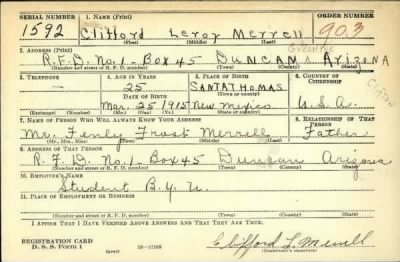 SERIAL NUMBER 1. NAME (Print) ORDER NUMBER
1592 Clifford Leroy Merrell 903
(First) (Middle) (Last)
2. ADDRESS (Print)
R.F.D. No. 1 - Box 45 DUNCAN Arizona
(Number and street or R. F. D. number) (Town) (County) (State)
3. TELEPHONE 4. AGE IN YEARS 5. PLACE OF BIRTH 6. COUNTRY OF CITIZENSHIP
— 25 SANTA THOMAS
DATE OF BIRTH (Town or county)
Mar. 25 1915 New Mexico U.S.A.
(Exchange) (Number) (Mo.) (Day) (Yr.) (State or country)
7. NAME OF PERSON WHO WILL ALWAYS KNOW YOUR ADDRESS 8. RELATIONSHIP OF THAT PERSON
Mr. Fenly Frost Merrell Father
(Mr., Mrs., Miss) (First) (Middle) (Last)
9. ADDRESS OF THAT PERSON
R.F.D. No. 1 - Box 45 Duncan Arizona
(Number and street or R. F. D. number) (Town) (County) (State)
10. EMPLOYER'S NAME
Student B.Y.U.
11. PLACE OF EMPLOYMENT OR BUSINESS
(Number and street or R. F. D. number) (Town) (County) (State)
I AFFIRM THAT I HAVE VERIFIED ABOVE ANSWERS AND THAT THEY ARE TRUE.
REGISTRATION CARD
D. S. S. Form 1 (over) 16—17105 Clifford L. Merrell
(Registrant's signature)